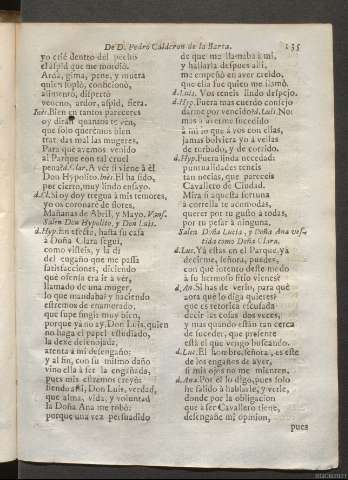 De D. Pedro Calderon de la Barca. 235
yo crié dentro del pecho
el aspid que me mordiò.
Arda, gima, pene, y muera
quien soplò, confecionò,
alimentò, dispertò
veneno, ardor, aspid, fiera.
Inès. Bien en tantos pareceres
oy diràn quantos te ven,
que solo querèmos bien
tratandonos mal las mugeres.
Para què avemos venido
al Parque con tal cruel
pena? d. Clar. A vèr si viene à èl
Don Hypolito. Inès. El ha sido,
por cierto, muy lindo ensayo.
d. Cl. Si oy doy tregua à mis temores,
yo os coronarè de flores,
Mañanas de Abril, y Mayo. Vans.
Salen Don Hypolito, y Don Luis.
d. Hyp. En efecto, hasta su casa
à Doña Clara seguì,
como visteis, y la dì
del engaño que me passa
satisfacciones, diciendo
que ofensa era ir à vèr,
llamado de una muger,
lo que mandaba; y haciendo
estremos de enamorado,
que supe fingir muy bien,
porque yà no ay, Don Luis, quien
no haga el papel estudiado,
la dexè desenojada,
atenta à mi desengaño;
y al fin, con su mismo daño
vino ella à ser la engañada,
pues mis estremos creyò:
siendo assi, Don Luis, verdad,
que alma, vida, y voluntad
la Doña Ana me robò;
porque una vez persuadido
de que me llamaba à mi,
y hallarla despues alli,
me empeñò en aver creìdo,
que ella fue quien me llamò.
d. Luis. Vos teneis lindo despejo.
d. Hyp. Fuera mas cuerdo consejo
darme por vencido? d. Luis. No;
mas à averme sucedido
à mi lo que à vos con ellas,
jamàs bolviera yo à vellas
de turbado, y de corrido.
d. Hyp. Fuera linda necedad:
puntualidades teneis
tan necias, que pareceis
Cavallero de Ciudad.
Mira si aquesta fortuna
à corrella te acomodas,
querer por tu gusto à todas,
por tu pesar à ninguna.
Salen Doña Lucia, y Doña Ana vestida como Doña Clara.
d. Luc. Yà estàs en el Parque, yà
decirme, señora, puedes,
con què intento deste modo
à su hermoso sitio vienes?
d. An. Si has de verlo, para què
aora que lo diga quieres?
que es retorica escusada
decir las cosas dos veces,
y mas quando estàn tan cerca
de suceder, que presente
està el que vengo buscando.
d. Luc. El hombre, señora, es este
de los engaños de ayer,
si mis ojos no me mienten.
d. Ana. Por èl lo digo, pues solo
he salido à hablarle, y verle,
donde por la obligacion
que à ser Cavallero tiene,
desengañe mi opinion,
pues